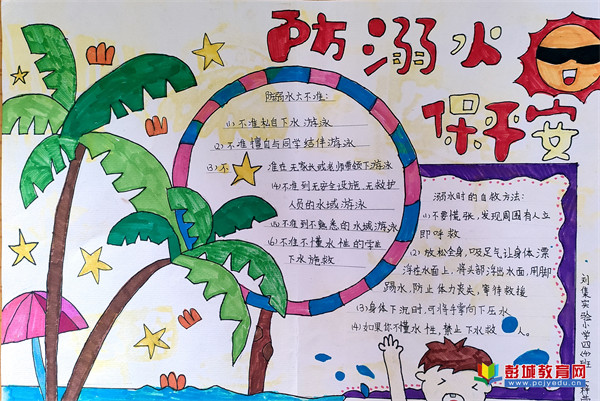 防溺水
保平安
防溺水六不准:
(1)不准私自下水游泳
(2)不准擅自与同学结伴游泳
(3)不准在无家长或老师带领下游泳
(4)不准到无安全设施、无救护
人员的水域游泳
不准到不熟悉的水域游泳
(6)不准不懂水性的学生
下水施救
溺水时的自救方法:
(1)不要慌张,发现周围有人立
即呼救
(2)放松全身,吸足气让身体漂
浮在水面上,将头部浮出水面,用脚
踢水,防止体力丧失,等待救援
(3)身体下沉时,可将手掌向下压水
(4)如果你不懂水性,禁止下水救人。
刘集实验小学四(4)班
彭城教育网
www.pcjyedu.cn